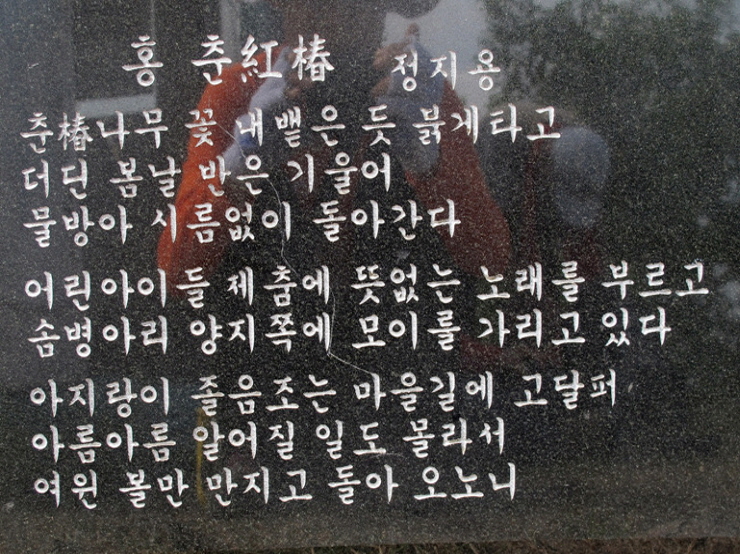 홍 춘紅椿 정지용
춘椿나무 꽃 내뱉은 듯 붉게타고
더딘 봄날 반은 기울어
물방아 시름없이 돌아간다
어린아이들 제춤에 뜻없는 노래를 부르고
솜병아리 양지쪽에 모이를 가리고 있다
아지랑이 졸음조는 마을길에 고달퍼
아름아름 알어질 일도 몰라서
여윈 볼만 만지고 돌아 오노니